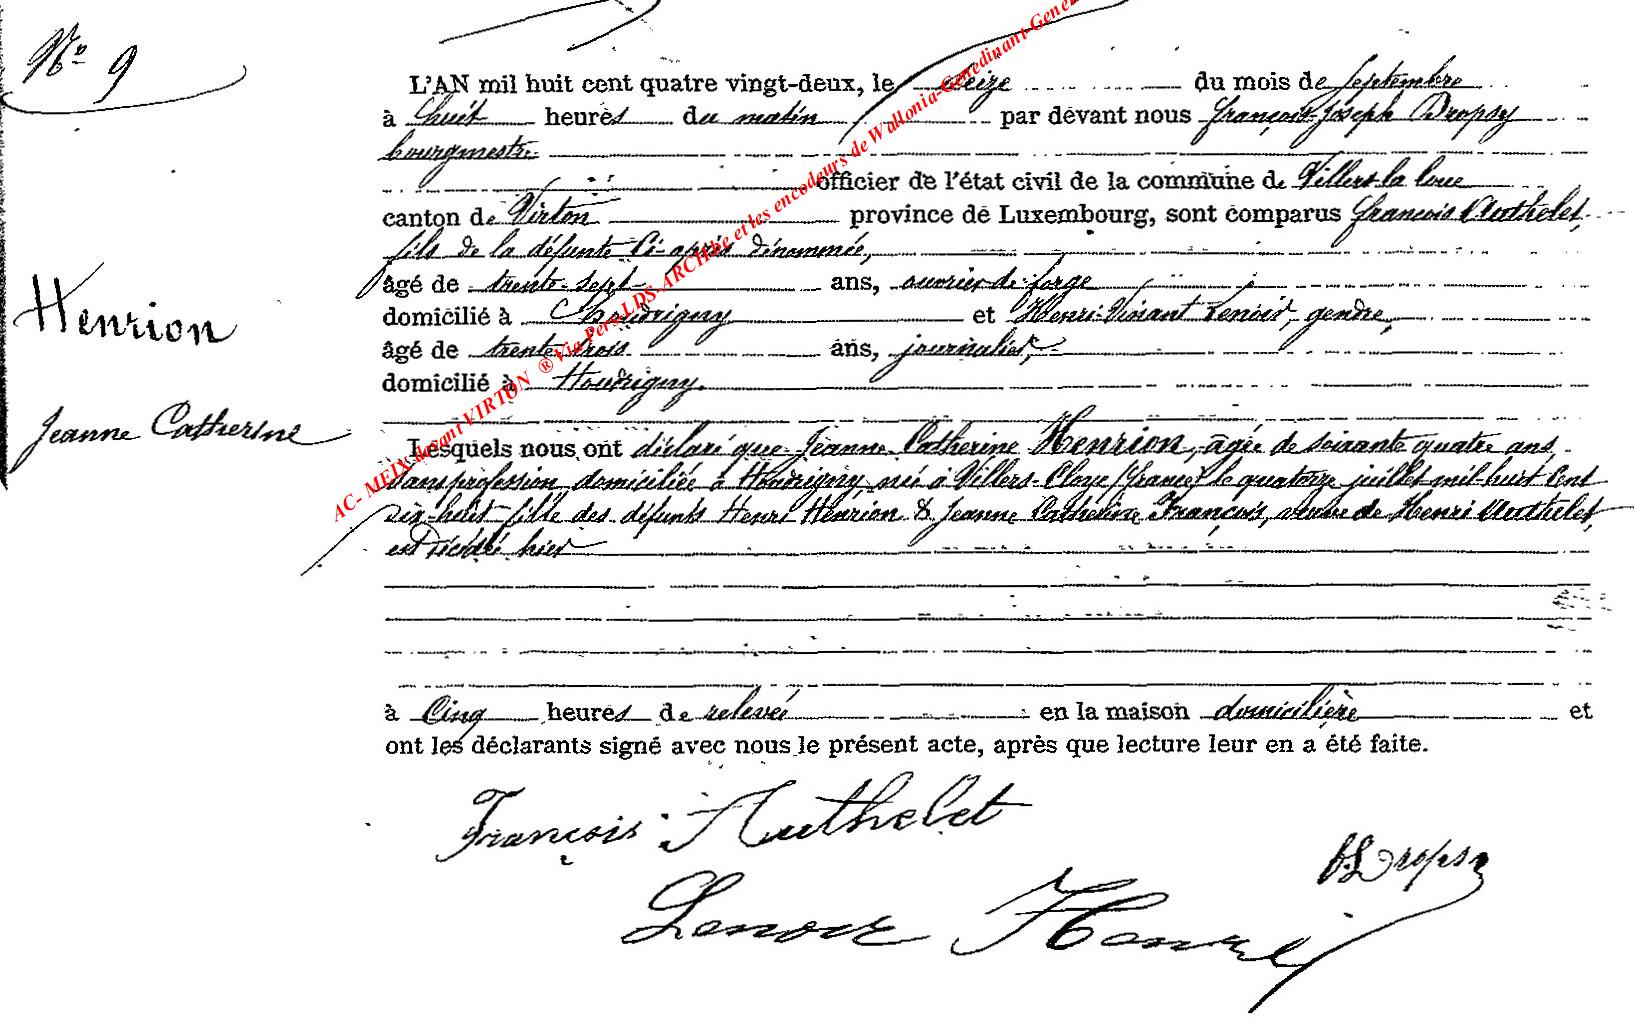 N° 9
L'AN mil huit cent quatre vingt-deux, le seize du mois de Septembre
à huit heures du matin par devant nous François-Joseph Dropsy
bourgmestre
officier de l'état civil de la commune de Villers-la-loue
canton de Virton province de Luxembourg, sont comparus François Authelet,
fils de la défunte ci-après dénommée,
âgé de trente-sept ans, ouvrier de forge
domicilié à Houdrigny et Henri Lenoir, gendre,
âgé de trente-trois ans, journalier,
domicilié à Houdrigny.
Henrion
Jeanne Catherine
Lesquels nous ont déclaré que Jeanne Catherine Henrion, âgée de soixante quatre ans
sans profession domiciliée à Houdrigny née à Villers-Cloye (France) le quatorze juillet mil-huit cent
dix-huit fille des défunts Henri Henrion & Jeanne Catherine François, veuve de Henri Authelet,
est décédée hier
à Cinq heures de relevée en la maison domicilière et
ont les déclarants signé avec nous le présent acte, après que lecture leur en a été faite.
François Authelet
Dropsy
Lenoir Henri
AC- MEIX devant VIRTON ® Via Pers LDS-ARCH.be et les encodeurs de Wallonia-Genedinant-Gene